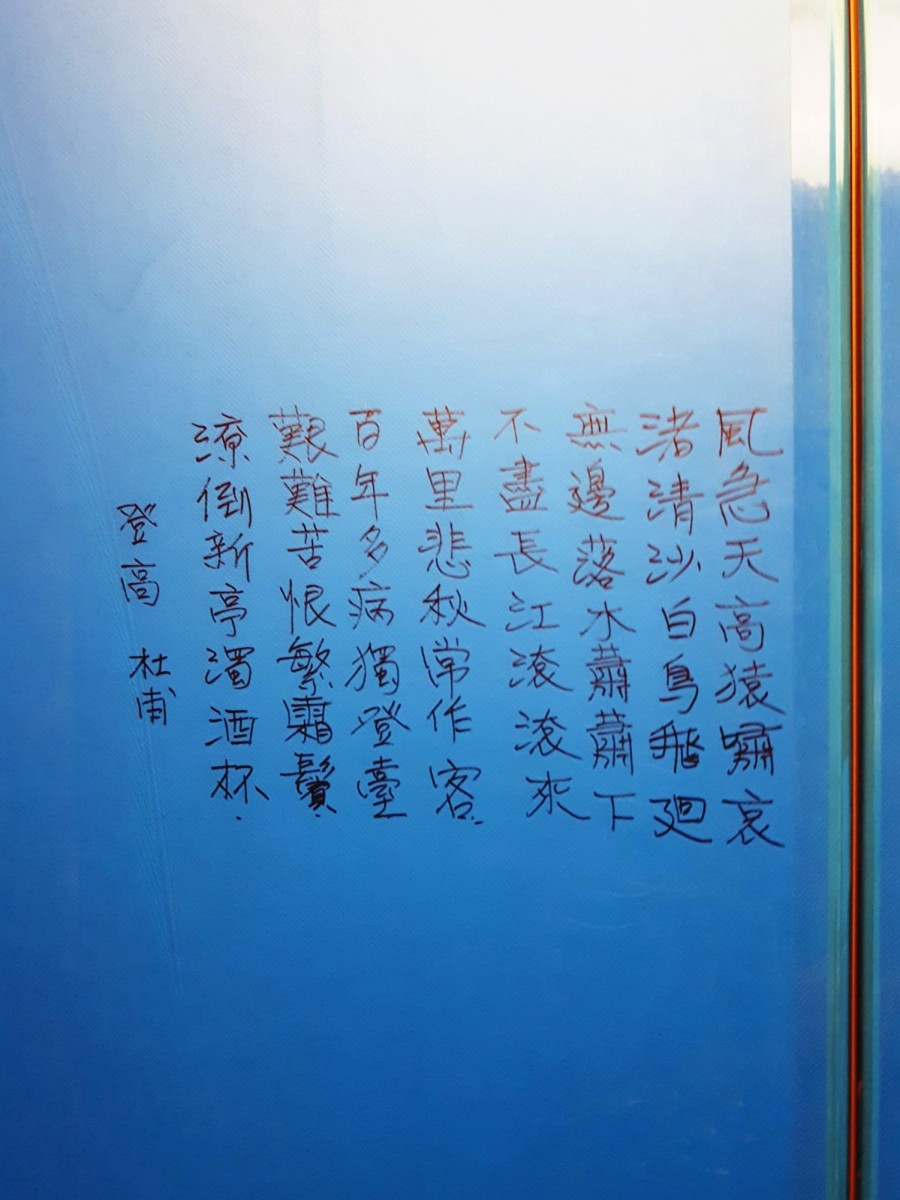 風急天高猿嘯哀
渚清沙白鳥飛廻
無邊落木蕭蕭下
不盡長江滾滾來
萬里悲秋常作客.
百年多病獨登臺
艱難苦恨繁霜鬢
潦倒新亭濁酒杯.
登高 杜甫